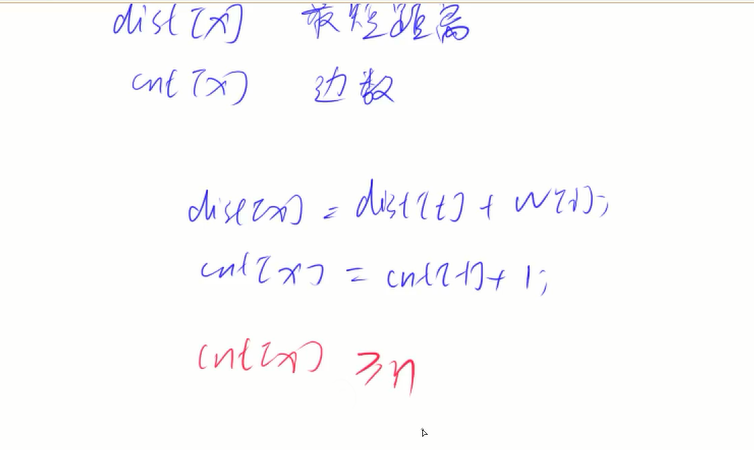 dist[x] 最短距离
cnt[x] 边数
dist[x] = dist[t] + w[i];
cnt[x] = cnt[t] + 1;
cnt[x] ≥n